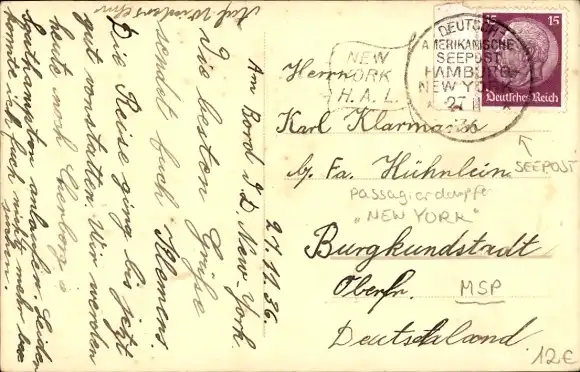 Auf Wiedersehn
Am Bord d. D. New-York
27.11.36.
Die besten Grüße
sendet Euch Klemens.
Die Reise ging bis jetzt
gut vonstatten. Wir werden
heute noch Cherbourg u.
Southampton anlaufen. Leider
konnte ich Euch nicht mehr
NEW
YORK
H. A. L.
DEUTSCH
AMERIKANISCHE
SEEPOST
HAMBURG
NEW YORK
15
15
Deutsches Reich
Herrn
Karl Klarmann
b. Fa. Hühnlein
SEEPOST
Passagierdampfer
„NEW YORK"
Burgkundstadt
Oberfr.
MSP
Deutschland.
12€